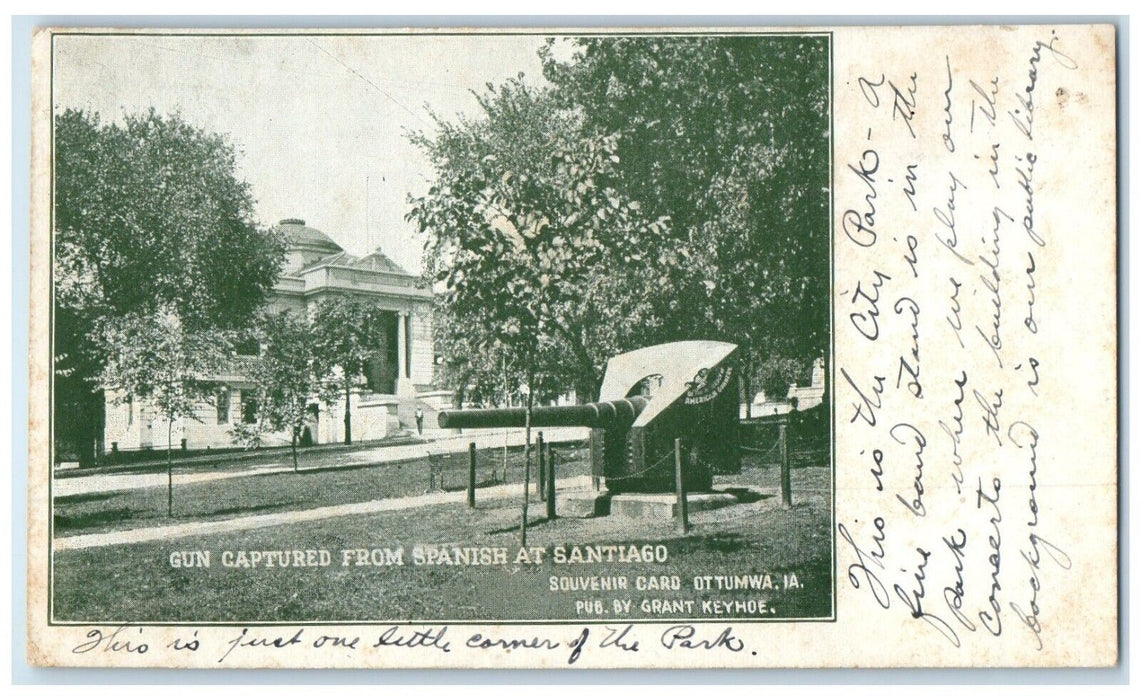 GUN CAPTURED FROM SPANISH AT SANTIAGO
SOUVENIR CARD OTTUMWA, IA.
PUB. BY GRANT KEYHOE.
This is just one little corner of the Park.
This is the City Park - a
fine band stand is in the
park where we play our
Conserts the building in the
background is our public library.